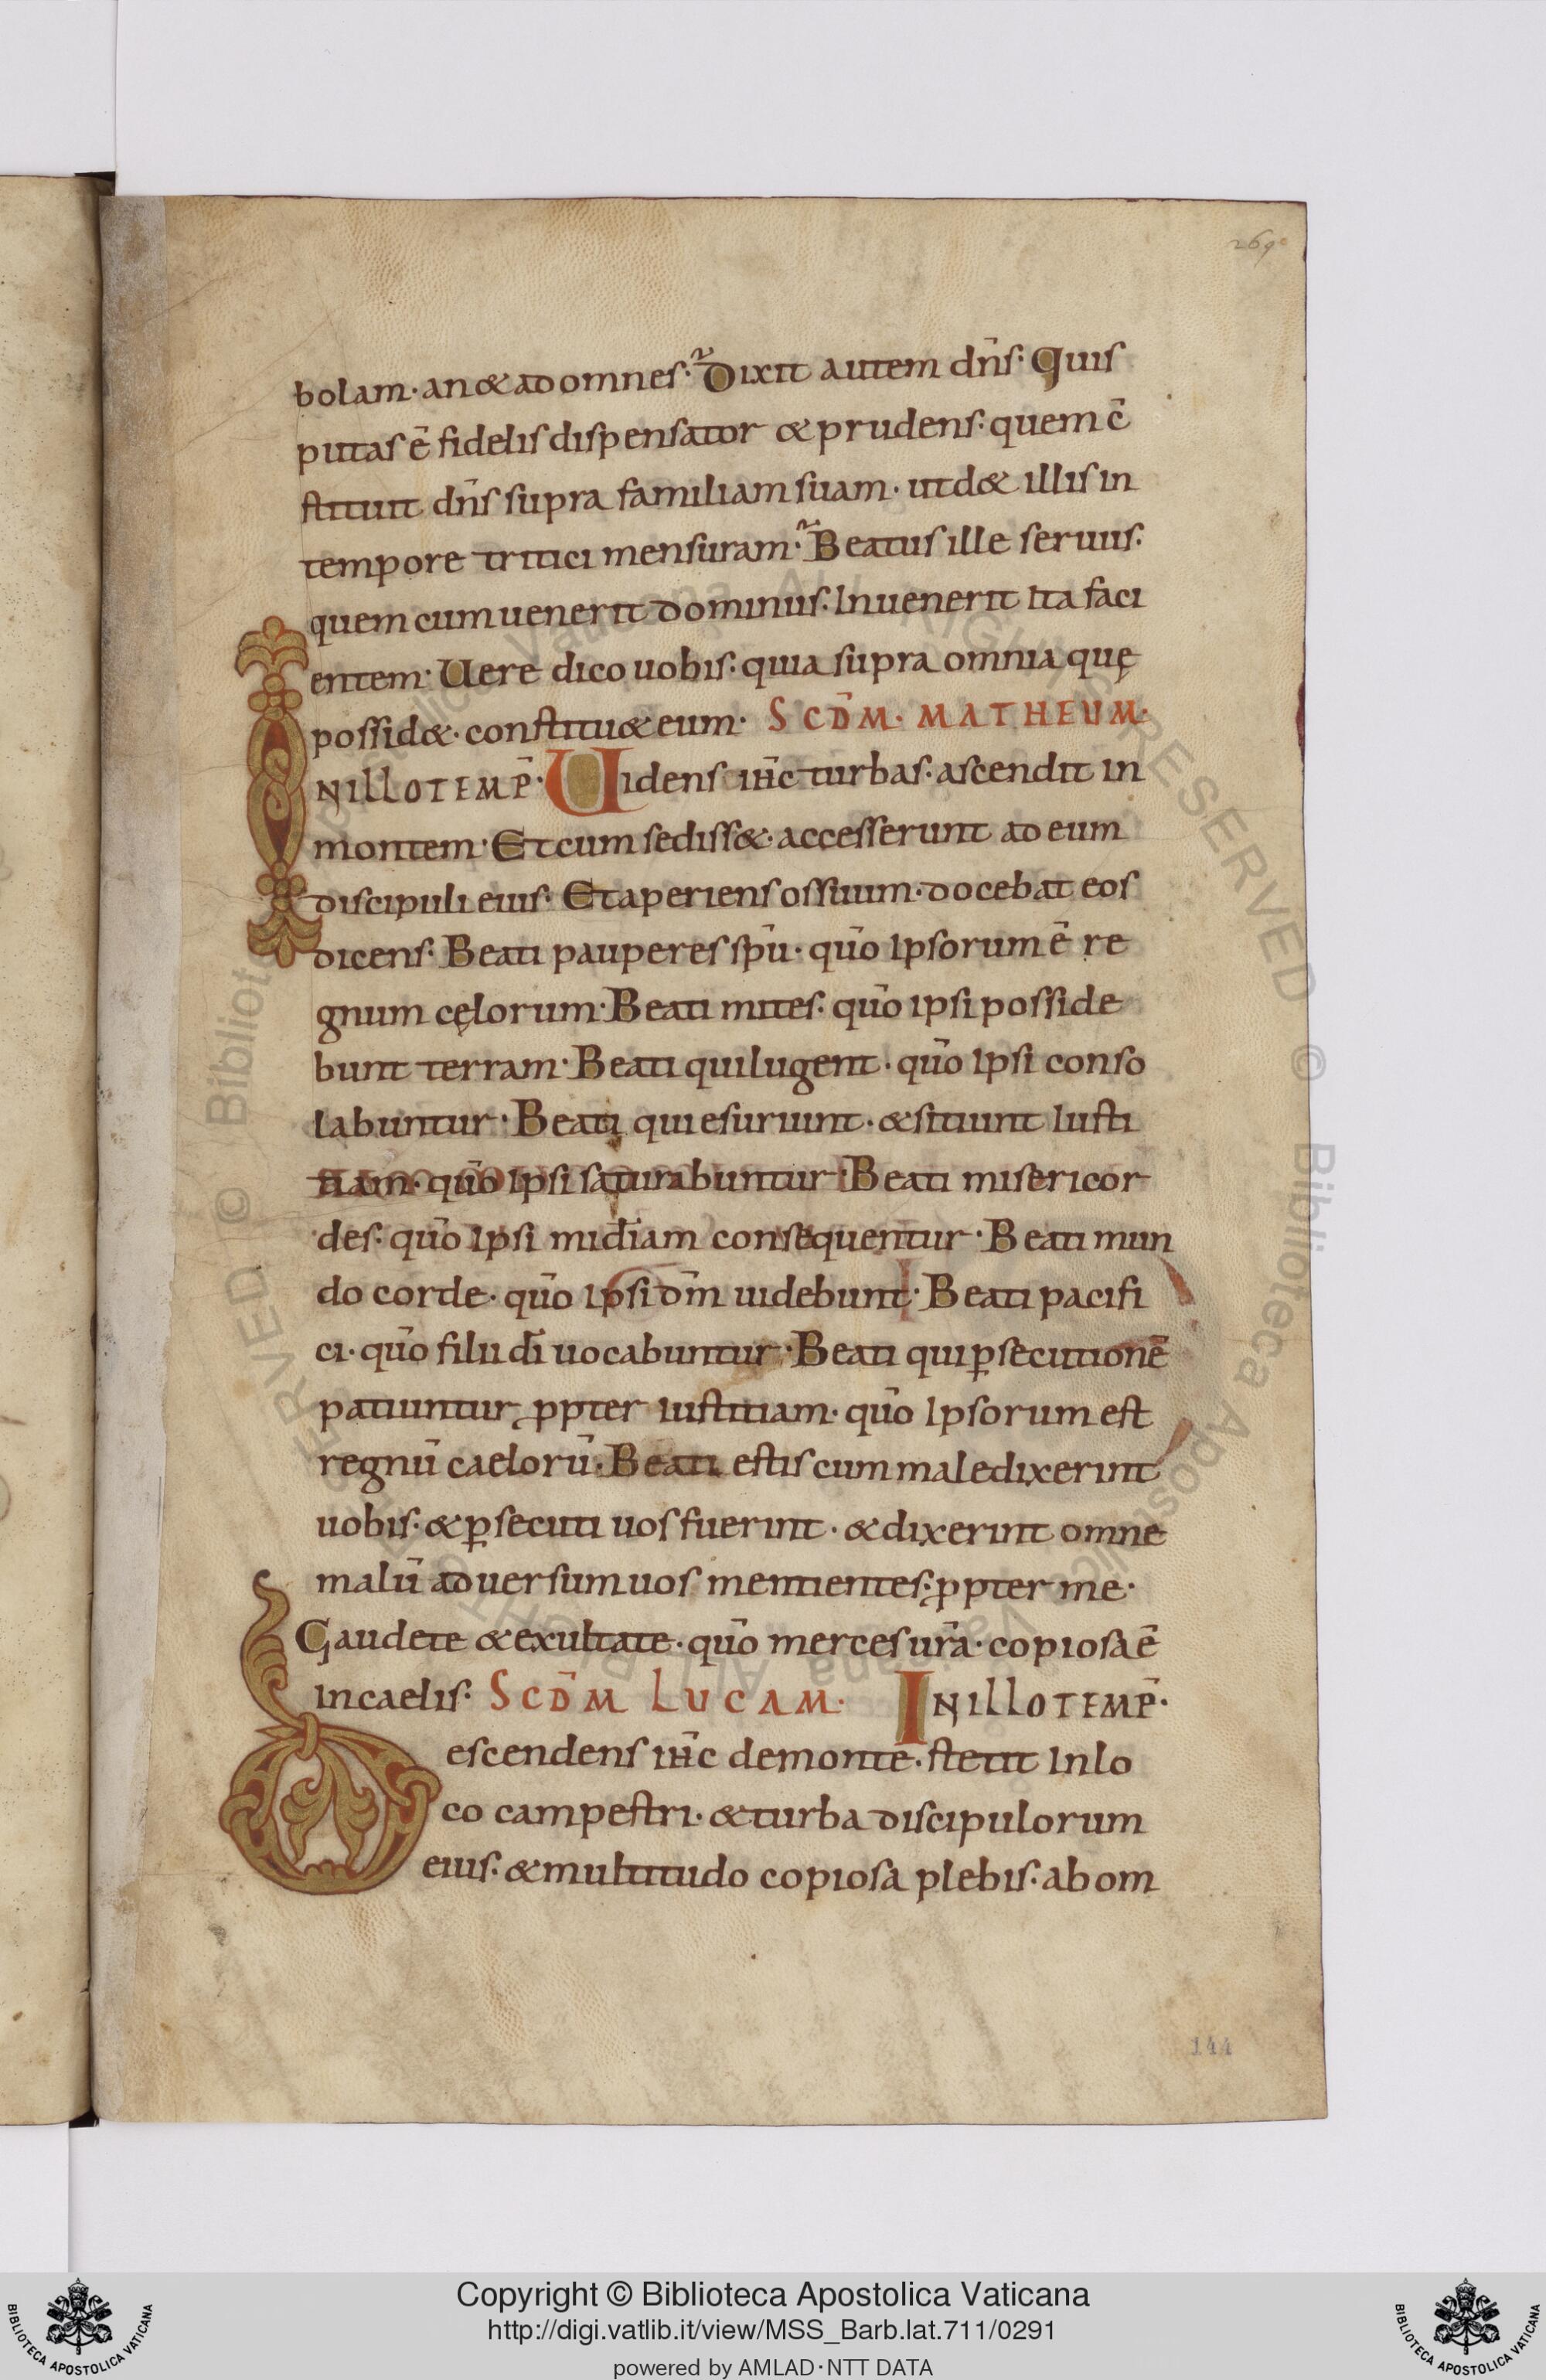 269
bolam· an & ad omnes· Dixit autem dn̄s· Quis
putas ē fidelis dispensator & prudens· quem c̄
stituit dn̄s supra familiam suam· ut d& illis in
tempore tritici mensuram· Beatus ille seruus·
quem cum uenerit dominus· Inuenerit Ita faci
entem· Uere dico uobis· quia supra omnia quę
possid&· constitu& eum· SCD̄M· MATHEUM·
INILLOTEMP̄· Uidens ih̄c turbas· ascendit in
montem· Et cum sediss&· accesserunt ad eum
discipuli eius· Et aperiens os suum· docebat eos
dicens· Beati pauperes sp̄u· qūo Ipsorum ē re
gnum cęlorum· Beati mites· qūo ipsi posside
bunt terram· Beati qui lugent· qūo Ipsi conso
labuntur· Beati qui esuriunt· & sitiunt Iusti
tiam· qūo Ipsi saturabuntur· Beati misericor
des· qūo Ipsi mid̄iam consequentur· Beati mun
do corde· qūo Ipsi dm̄ uidebunt· Beati pacifi
ci· qūo filii dī uocabuntur· Beati qui ꝑsecutionē
patiuntur ꝓpter iustitiam· qūo Ipsorum est
regnū caelorū· Beati estis cum maledixerint
uobis· & ꝑsecuti uos fuerint· & dixerint omne
malū aduersum uos mentientes· ꝓpter me·
Gaudete & exultate· qūo merces ur̄a· copiosa ē
in caelis· SCD̄M LUCAM· INILLOTEMP̄·
Descendens ih̄c de monte· stetit In lo
co campestri· & turba discipulorum
eius· & multitudo copiosa plebis· ab om
144
Copyright © Biblioteca Apostolica Vaticana
http://digi.vatlib.it/view/MSS_Barb.lat.711/0291
powered by AMLAD·NTT DATA
BIBLIOTECA APOSTOLICA VATICANA
BIBLIOTECA APOSTOLICA VATICANA